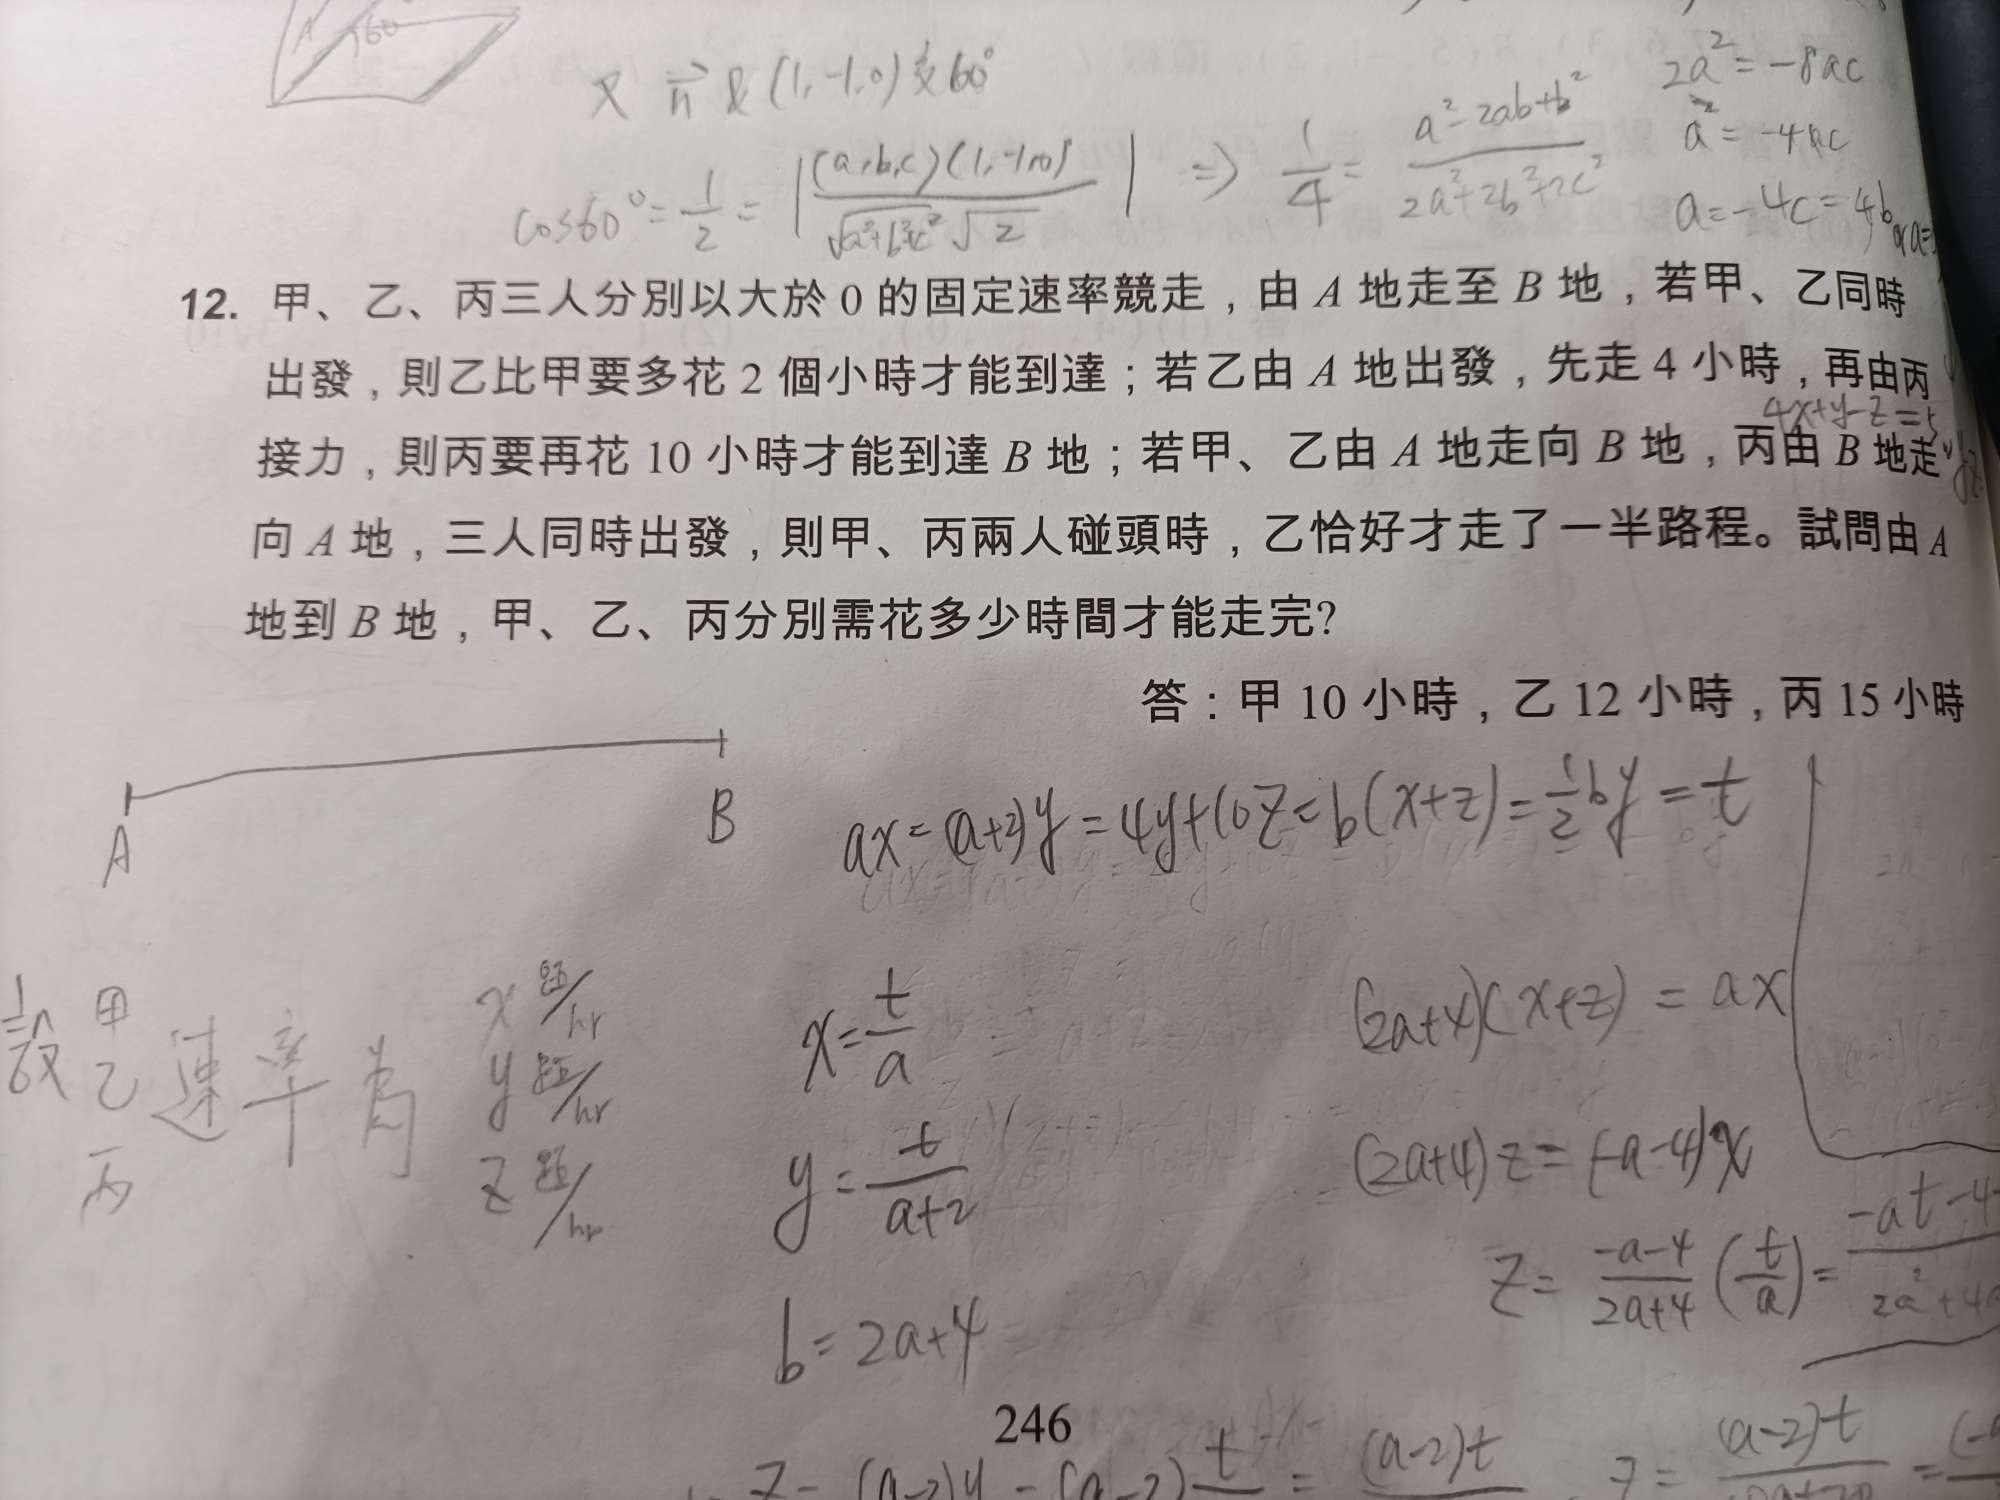 60°
又 n⃗ 與 (1,-1,0) 夾60°
2a² = -8ac
cos60° = 1/2 = | (a,b,c)(1,-1,0) / √a²+b²+c² √2 | ⇒ 1/4 = a²-2ab+b² / 2a²+2b²+2c²
a² = -4ac
a = -4c = 4b or a=
12. 甲、乙、丙三人分別以大於 0 的固定速率競走，由 A 地走至 B 地，若甲、乙同時
出發，則乙比甲要多花 2 個小時才能到達；若乙由 A 地出發，先走 4 小時，再由丙
4x+y-z=5
接力，則丙要再花 10 小時才能到達 B 地；若甲、乙由 A 地走向 B 地，丙由 B 地走
向 A 地，三人同時出發，則甲、丙兩人碰頭時，乙恰好才走了一半路程。試問由 A
地到 B 地，甲、乙、丙分別需花多少時間才能走完?
答：甲 10 小時，乙 12 小時，丙 15 小時
A B
ax = (a+2)y = 4y+10z = b(x+z) = 1/2 by = t
設 甲 乙 丙 速率為 x 距/hr y 距/hr z 距/hr
x = t/a
(2a+4)(x+z) = ax
y = t/a+2
(2a+4)z = (-a-4)x
z = -a-4/2a+4 (t/a) = -at-4 / 2a²+4a
b = 2a+4
246
(a-2)y = (a-2) t = (a-2)t
(a-2)t